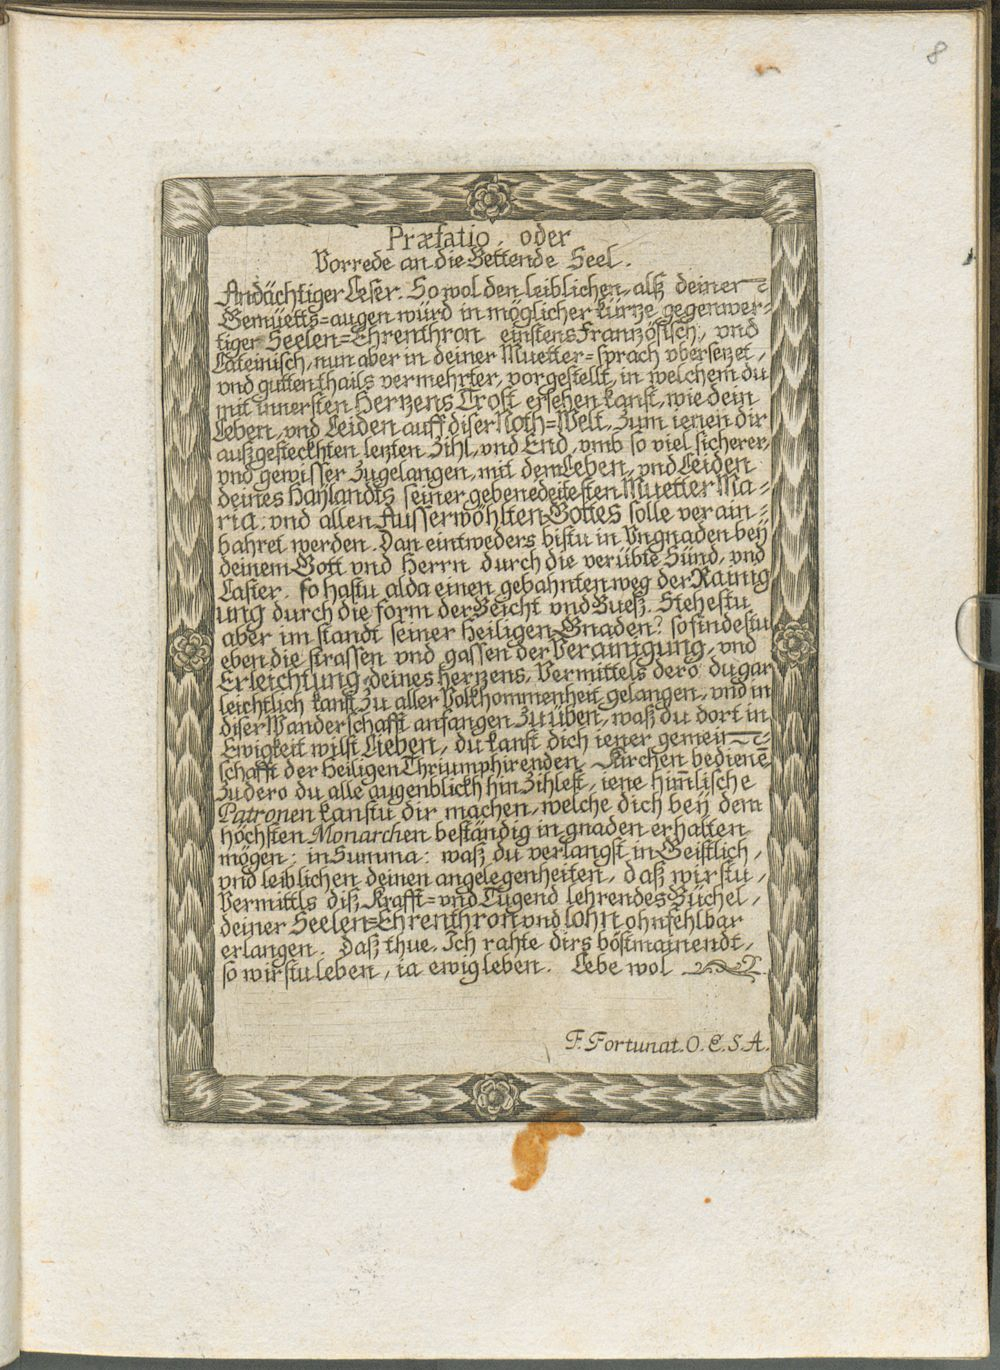 8
Præfatio, oder
Vorrede an die Bettende Seel.
Andächtiger Leser. So wol den leiblichen, alß deinen
Gemüetts=augen würd in möglicher kürze gegenwer=
tiger Seelen=Ehrenthron einstens Französisch, vnd
Lateinisch, nun aber in deiner Muetter=sprach vbersezet,
vnd gutten thails vermehrter, vorgestellt, in welchem du
mit innersten Herzens Trost ersehen kanst, wie dein
Leben, vnd Leiden auff diser Noth=Welt, Zum ienen dir
außgesteckhten lezten Zihl, vnd End, vmb so viel sicherer,
vnd gewisser Zugelangen, mit dem Leben, vnd Leiden
deines Haylandts seiner gebenedeitesten Muetter Ma=
ria: vnd allen Ausserwöhlten Gottes solle verain=
bahret werden. Dan eintweders bistu in Vngnaden beÿ
deinem Gott vnd Herrn durch die verübte Sünd, vnd
Laster. so hastu alda einen gebahnten weg der Rainig
ung durch die form der Beicht vnd Bueß. Stehestu
aber im standt seiner Heiligen Gnaden? so findestu
eben die strassen vnd gassen der Verainigung, vnd
Erleichtung deines herzens, Vermittels dero du gar
leichtlich kanst Zu aller Volkhommenheit gelangen, vnd in
diser Wanderschafft anfangen Zu üben, waß du dort in
Ewigkeit wilst Lieben, du kanst dich iener gemein=
schafft der Heiligen Thriumphirenden Kirchen bedienē
Zu dero du alle augenblickh hin Zihlest, iene him̄lische
Patronen kanstu dir machen, welche dich beÿ dem
höchsten Monarchen beständig in gnaden erhalten
mögen: in Summa: waß du verlangst in Geistlich,
vnd leiblichen deinen angelegenheiten, daß wirstu,
Vermittls diß Krafft=vnd Tugend lehrendes Büchel,
deiner Seelen=Ehrenthron vnd lohn ohnfehlbar
erlangen. Daß thue. Ich rahte dirs böstmainendt,
so wirstu leben, ia ewig leben. Lebe wol
F. Fortunat. O. E. S. A.